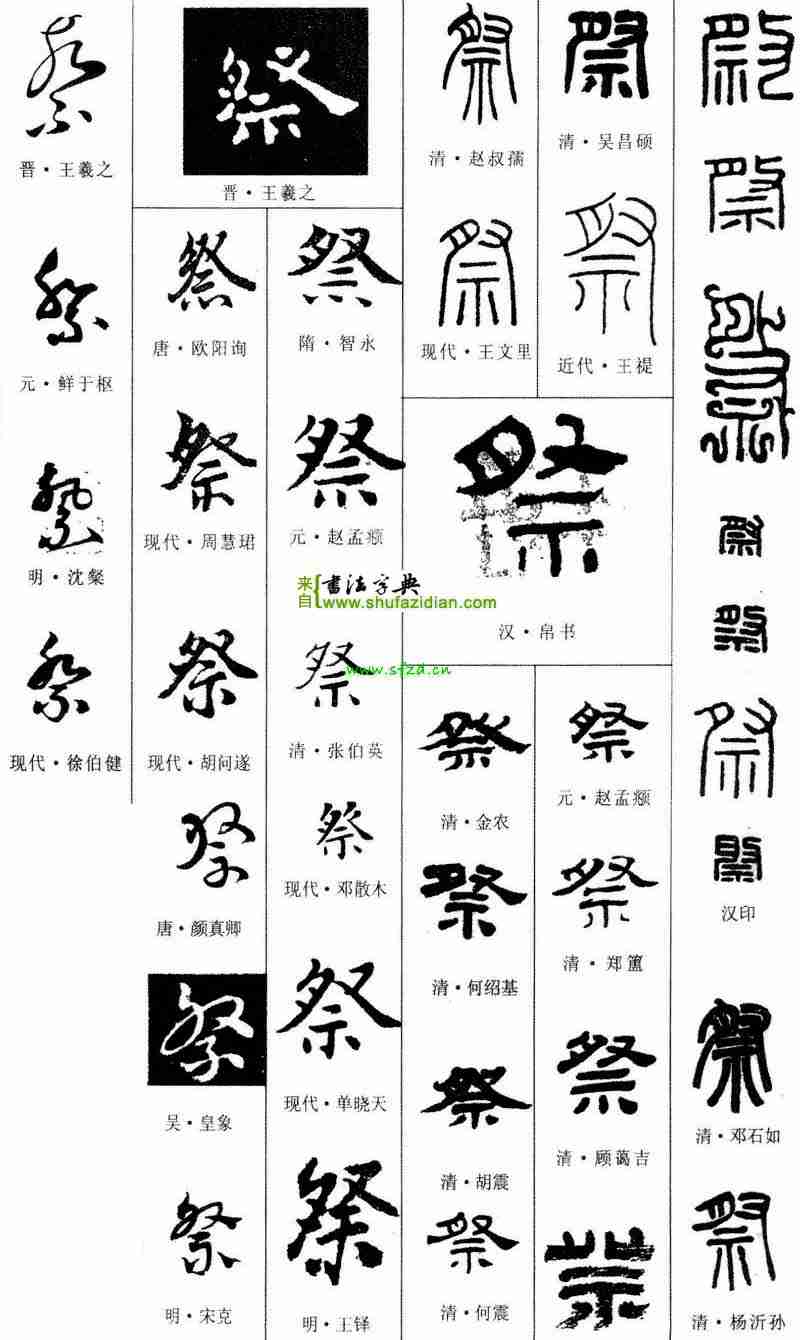 祭
晋·王羲之
祭
元·鲜于枢
祭
明·沈粲
祭
现代·徐伯健
祭
晋·王羲之
祭
唐·欧阳询
祭
现代·周慧珺
祭
现代·胡问遂
祭
唐·颜真卿
祭
吴·皇象
祭
明·宋克
祭
隋·智永
祭
元·赵孟頫
来自{书法字典
www.shufazidian.com
祭
www.sfzd.cn
清·张伯英
祭
现代·邓散木
祭
现代·单晓天
祭
明·王铎
祭
清·赵叔孺
祭
现代·王文里
祭
清·吴昌硕
祭
近代·王禔
祭
汉·帛书
祭
清·金农
祭
清·何绍基
祭
清·胡震
祭
清·何震
祭
元·赵孟頫
祭
清·郑簠
祭
清·顾蔼吉
祭
祭
祭
祭
祭
祭
祭
汉印
祭
清·邓石如
祭
清·杨沂孙